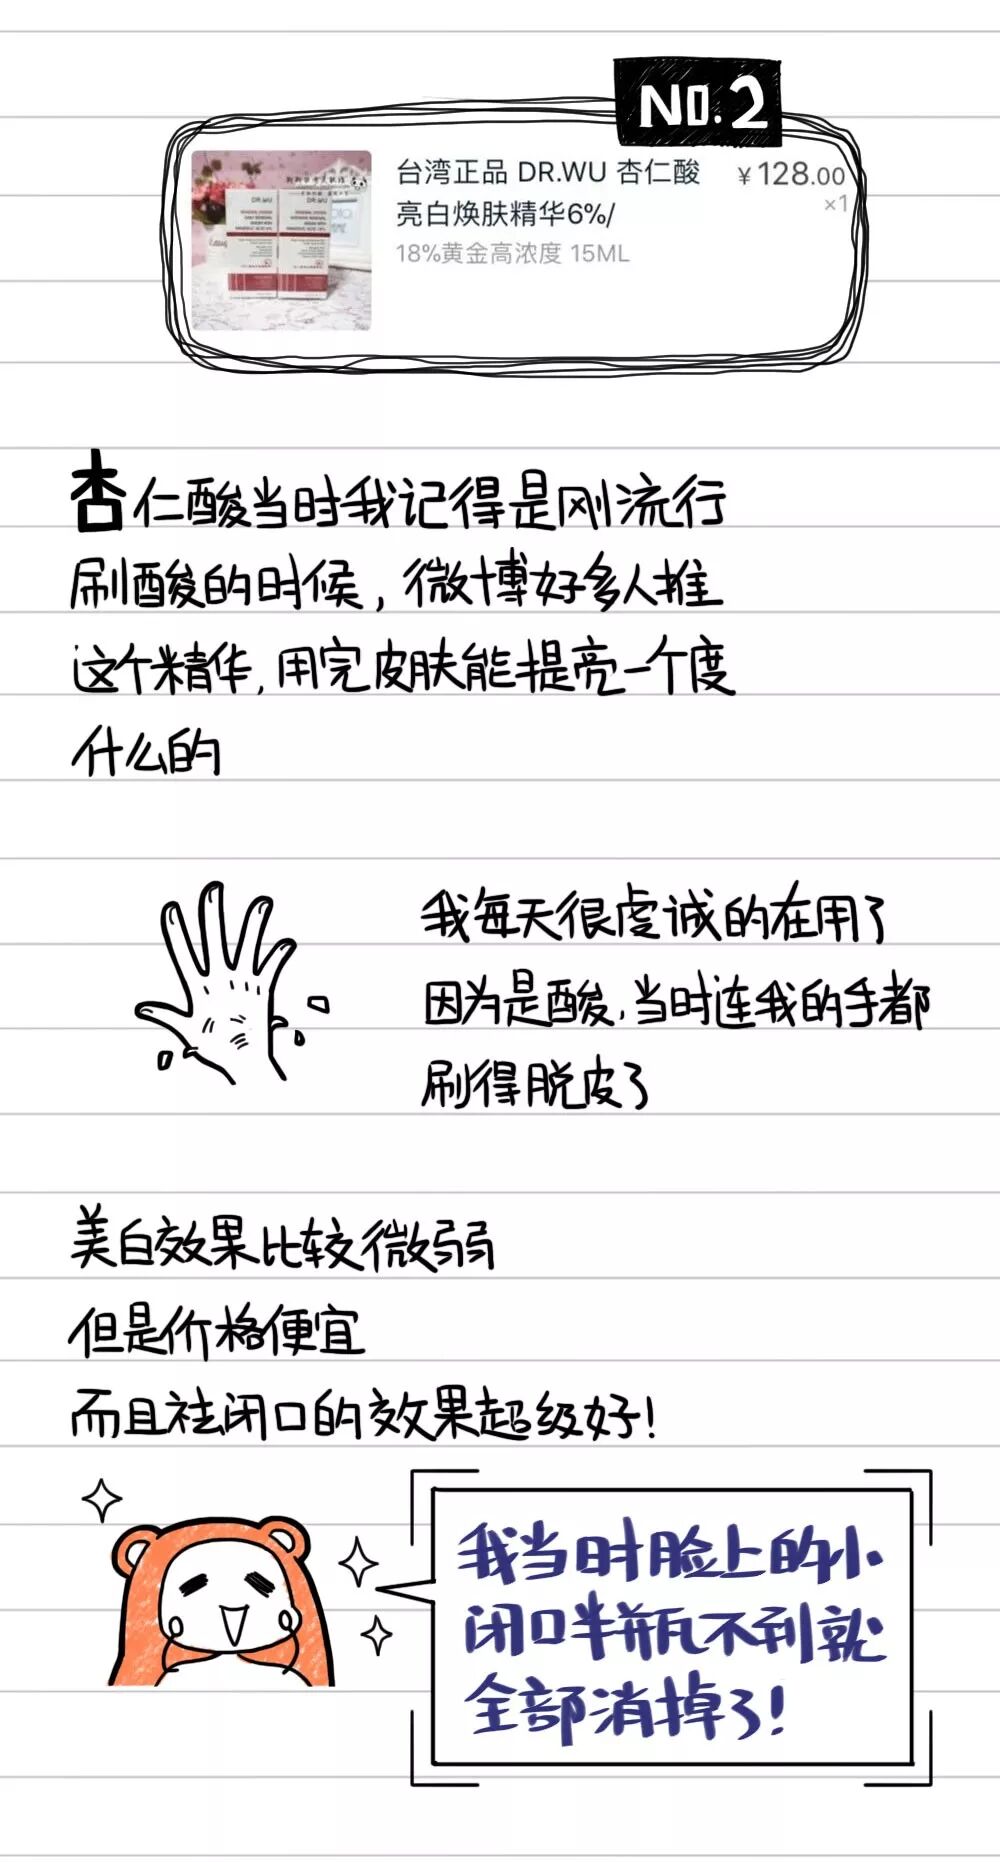 NO.2
台湾正品 DR.WU 杏仁酸 ¥128.00
亮白焕肤精华6%/ ×1
18%黄金高浓度 15ML
DR.WU DR.WU
杏仁酸当时我记得是刚流行
刷酸的时候，微博好多人推
这个精华，用完皮肤能提亮一个度
什么的
我每天很虔诚的在用了
因为是酸，当时连我的手都
刷得脱皮了
美白效果比较微弱
但是价格便宜
而且祛闭口的效果超级好！
我当时脸上的小
闭口半瓶不到就
全部消掉了！